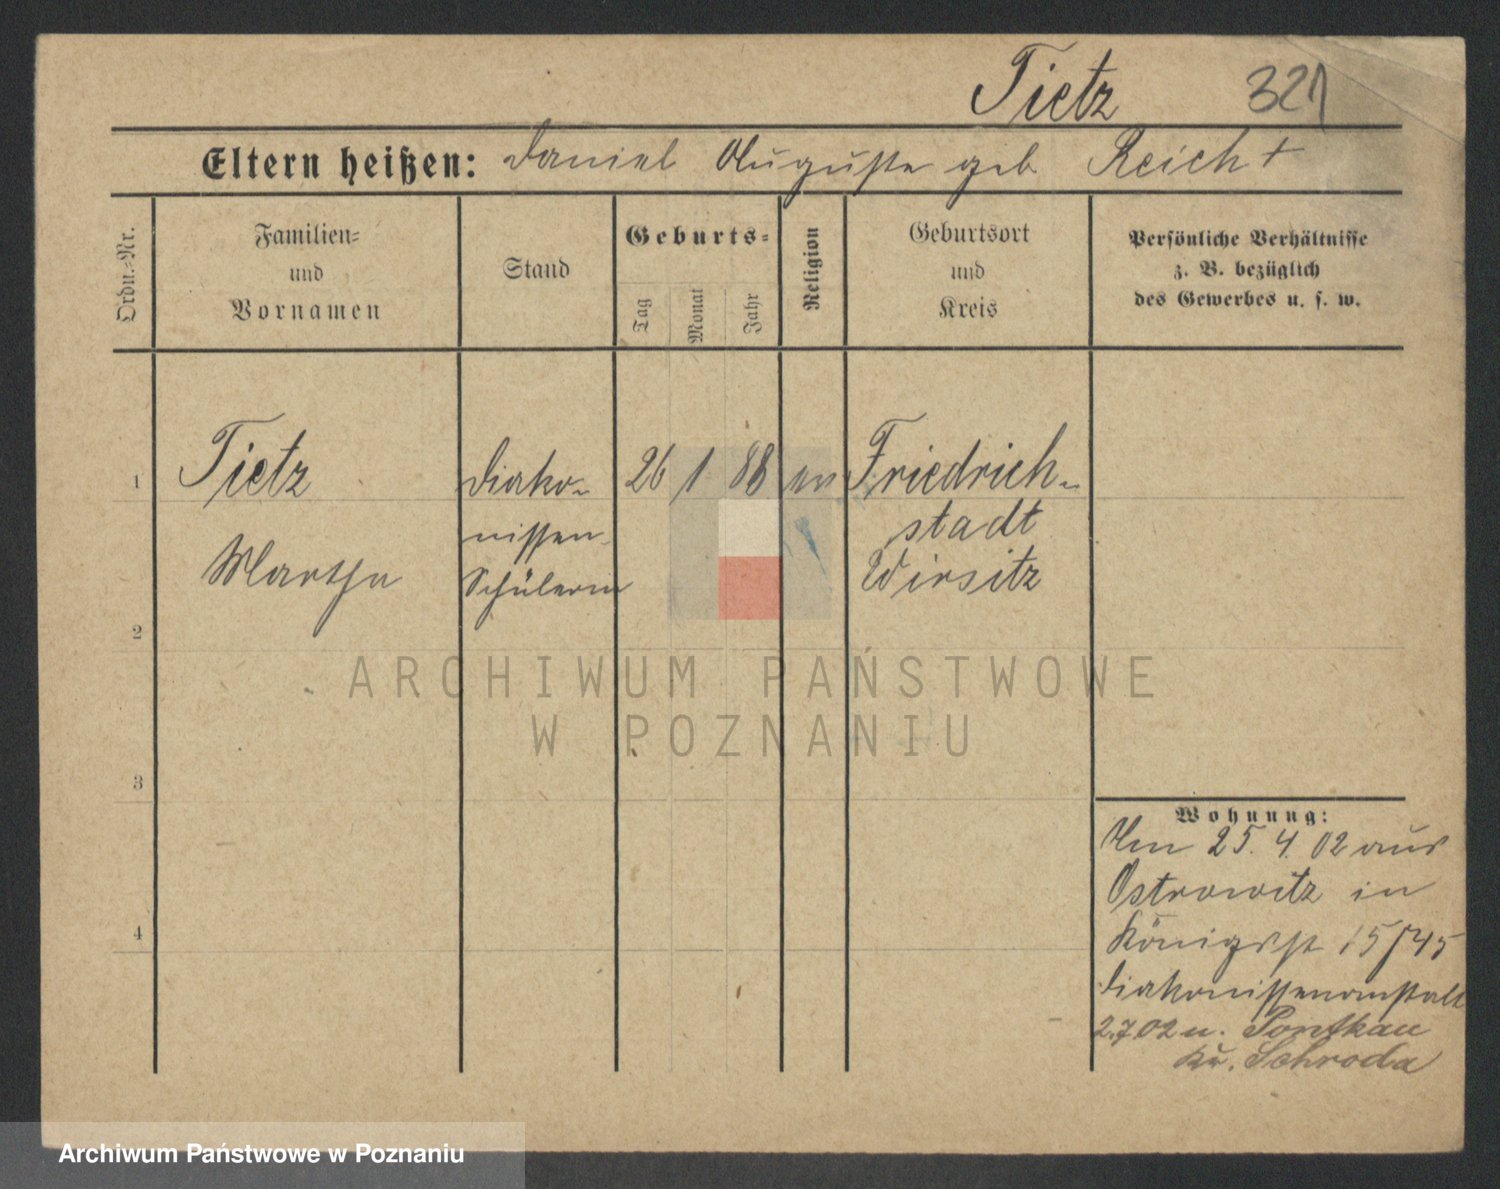 Tietz 321
Eltern heißen: Daniel Auguste geb Reich +
Ordn.-Nr.
Familien-
und
Vornamen
Stand
Geburts-
Tag
Monat
Jahr
Religion
Geburtsort
und
Kreis
Persönliche Verhältnisse
z. B. bezüglich
des Gewerbes u. s. w.
1 Tietz Diako- 26 1 88 ev Friedrich-
nissen- stadt
Martha Schülerin Wirsitz
2
ARCHIWUM PAŃSTWOWE
W POZNANIU
3
Wohnung:
Am 25. 4. 02 aus
Ostrowitz in
4
Königsst 15/45
Diakonissenanstalt
2.7 02 n.
Kr. Schroda
Archiwum Państwowe w Poznaniu